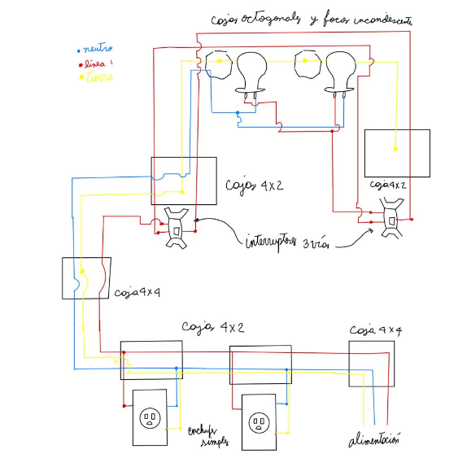 Cajas octogonales y focos incandescentes
neutro
línea 1
Tierra
Cajas 4x2
caja 4x2
interruptores 3 vías
caja 4x4
Cajas 4x2
Caja 4x4
enchufes
simples
alimentación